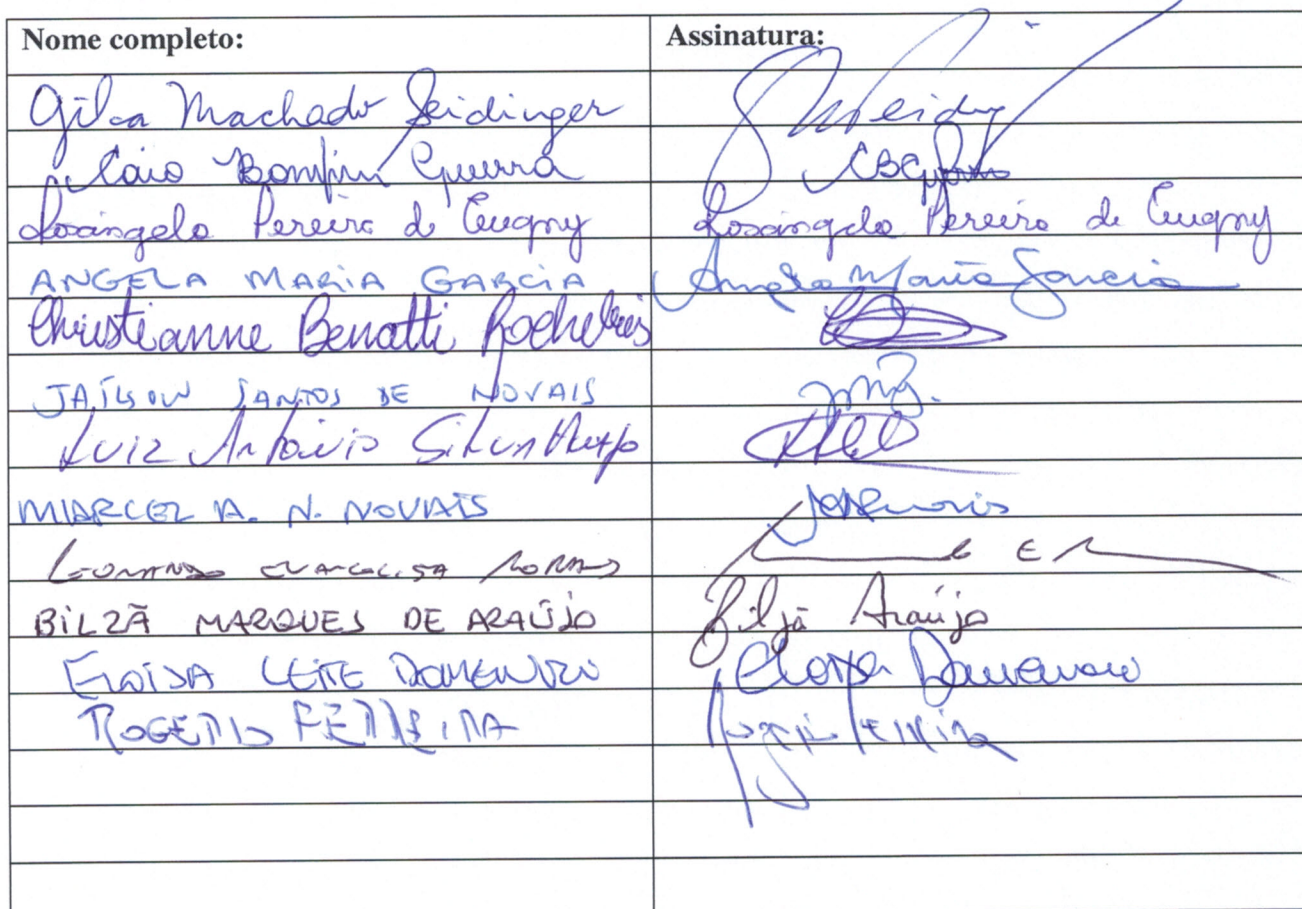 Nome completo: Assinatura:
Gilca Machado Seidinger
Caio Bomfim Guerra
Rosângela Pereira de Tugny Rosângela Pereira de Tugny
ANGELA MARIA GARCIA Angela Maria Garcia
Christianne Benatti Rochebois
JAÍLSON SANTOS DE NOVAIS
LUIZ Antônio Silva Araújo
MARCEL A. N. NOVAIS
LEONARDO EVANGELISTA MORAES
BILZÃ MARQUES DE ARAÚJO Bilzã Araújo
ELOISA LEITE DOMENICI Eloisa Domenici
ROGÉRIO FERREIRA Rogério Ferreira